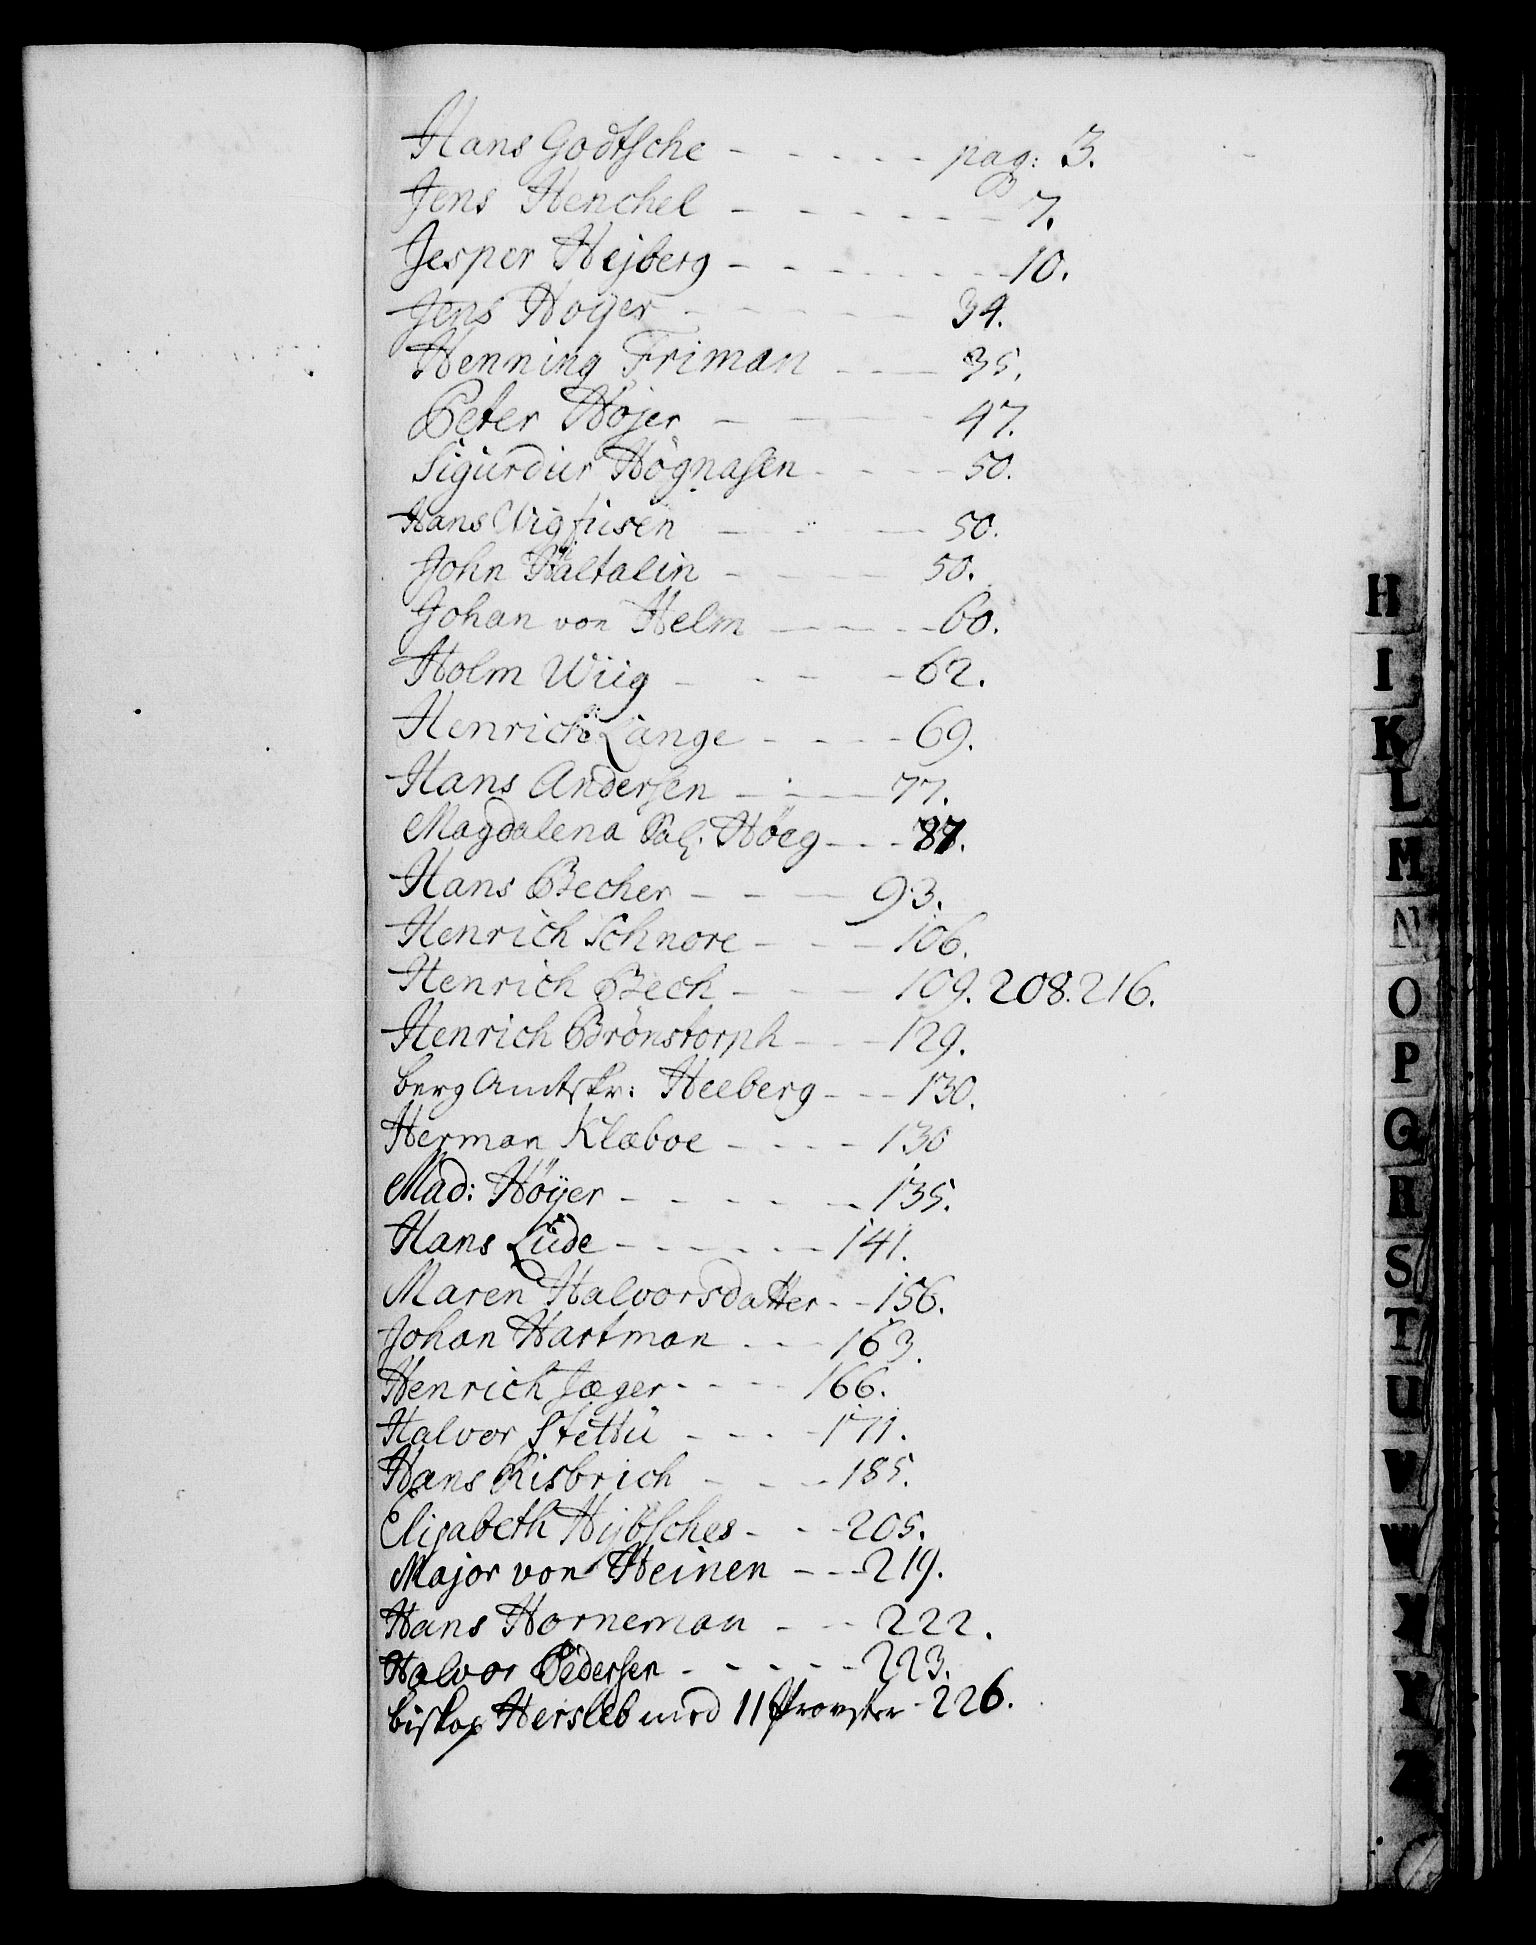 Hans Godtsche - - - - - pag: 3.
Jens Henchel - - - - - - 7.
Jesper Hejberg - - - - - - 10.
Jens Høyer - - - - - 34.
Henning Friman - - - 35.
Peter Højer - - - 47.
Sigurdur Høgnasen - - - - 50.
Hans Wigfusen - - - 50.
John Haltalin - - - - 50.
Johan von Helm - - - - 60.
Holm Wiig - - - - 62.
Henrich Lange - - - - 69.
Hans Andersen - - - 77.
Magdalena Sal: Høeg - - - 87.
Hans Becher - - - 93.
Henrich Schnore - - - 106.
Henrich Bech - - - 109. 208. 216.
Henrich Brönstorph - - - 129.
berg Amtskr: Heeberg - - - 130.
Herman Klæboe - - - - 130
Mad: Høÿer - - - - - - 135.
Hans Lude - - - - - - 141.
Maren Halvorsdatter - - 156.
Johan Hartman - - - 163.
Henrich Jæger - - - - 166.
Halvor Stettü - - - - 171.
Hans Risbrich - - - 185.
Elisabeth Hÿbsches - - - 205.
Major von Heinen - - - 219.
Hans Horneman - - - 222.
Halvor Pedersen - - - - - 223.
biskop Hersleb med 11 Provster - 226.
H
I
K
L
M
N
O
P
Q
R
S
T
U
V
W
X
Y
Z